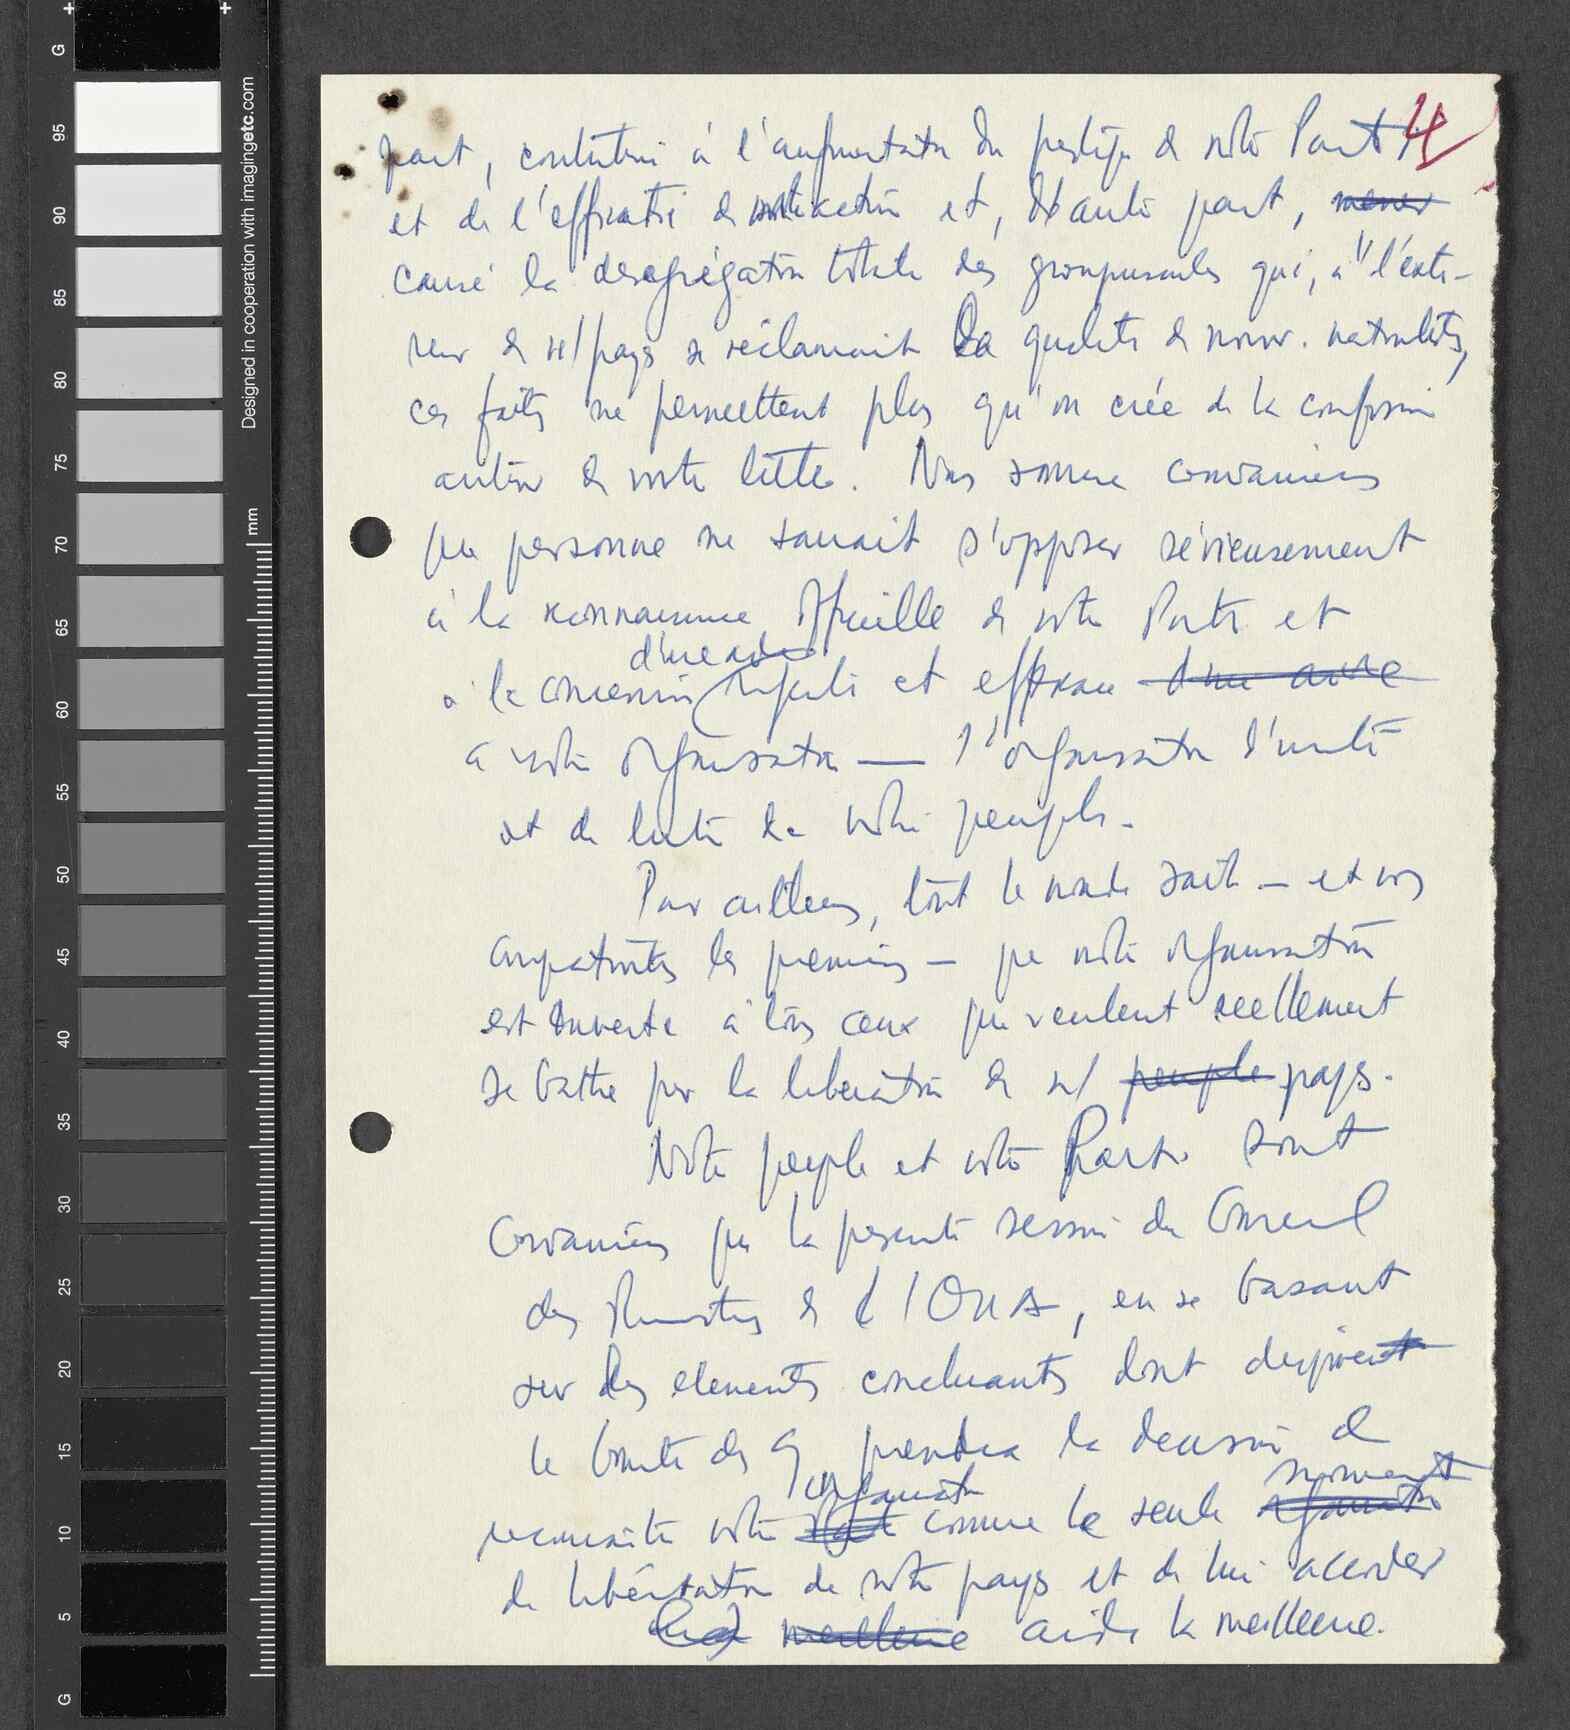 G
95
90
85
80
75
70
65
60
55
50
45
40
35
30
25
20
15
10
5
G
Designed in cooperation with imagingetc.com
mm
4
part, contribué à l'augmentation du prestige de notre Parti
et de l'efficacité de notre action et, d'autre part, mener
causé la desagrégation totale des groupuscules qui, à l'exté-
rieur de n/ pays se réclamait la qualité de mouv. nationalistes,
ces faits ne permettent plus qu'on crée de la confusion
autour de notre lutte. Nous sommes convaincus
que personne ne saurait s'opposer sérieusement
à la reconnaissance officielle de notre Parti et
d'une aide
à la concession régulière et efficace d'une aide
à notre organisation — l'organisation d'unité
et de lutte de notre peuple.
Par ailleurs, tout le monde sait — et nos
compatriotes les premiers — que notre organisation
est ouverte à tous ceux qui veulent réellement
se battre pour la libération de n/ peuple pays.
Notre peuple et notre Parti sont
convaincus que la présente session du Conseil
des Ministres de l'OUA, en se basant
sur des elements concluants dont disposent
le Comité des 9 prendra la decision de
organisation mouvement
reconnaitre notre comme le seule organisation
de libération de notre pays et de lui accorder
meilleure aide la meilleure.